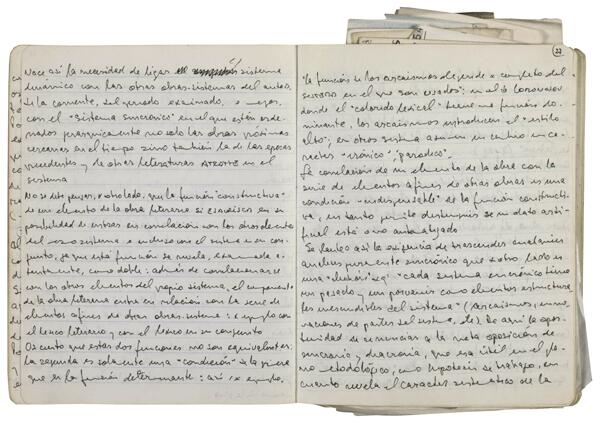 Nace así la necesidad de ligar el sistema
dinámico con las otras obras-sistemas del autor,
de la corriente, del período examinado, o mejor,
con el "sistema sincrónico" en el que están orde-
nados jerárquicamente no sólo las obras próximas
cercanas en el tiempo sino también las de épocas
precedentes y de otras literaturas en el
sistema
No se debe pensar, x otro lado, que la función "constructiva"
de un elemento de la obra literaria se en su
posibilidad de entrar en correlación con los otros elementos
del sistema e incluso con el sistema en su con-
junto, ya que esta función se revela, examinada a-
tentamente, como doble: además de correlacionarse
con los otros elementos del propio sistema, el componente
de la obra literaria entra en relación con la serie de
elementos afines de otras obras-sistema: x ejemplo con
el léxico literario y con el léxico en su conjunto
Es cierto que estas dos funciones no son equivalentes:
la segunda es solamente una "condición" de la primera
que es la función determinante: así, x ejemplo,
33
la función de los arcaísmos depende x completo del
en el que son usados; en el de Lomonosov
donde el "colorido lexical" tiene una función do-
minante, los arcaísmos introducen el "estilo
alto"; en otros sistemas asumen en cambio un ca-
rácter "irónico", "paródico".
La correlación de un elemento de la obra con la
serie de elementos afines de otras obras es una
condición "indispensable" de la función constructi-
va, en tanto permite distinguir si un dato artí-
ficial está o no automatizado
Se plantea así la exigencia de trascender cualquier
análisis puramente sincrónico que x otro lado es
una "ilusión" xq' "cada sistema sincrónico tiene
un pasado y un porvenir como elementos estructura-
les inescindibles del sistema" (Arcaísmos, inno-
vaciones de partes del sistema, etc.) De aquí la opor-
tunidad de renunciar a la neta oposición de
sincronía y diacronía, que era útil en el pla-
no metodológico, como hipótesis de trabajo, en
cuanto revela el carácter sistemático de la